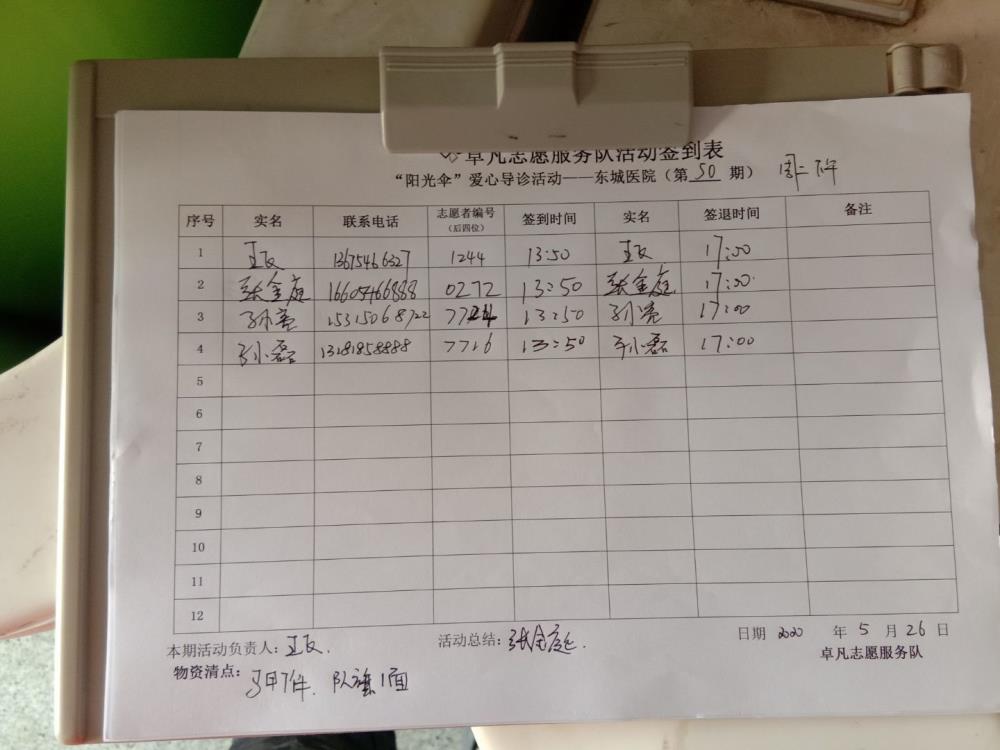 卓凡志愿服务队活动签到表
“阳光伞”爱心导诊活动——东城医院（第 50 期） 周二下午
序号 实名 联系电话 志愿者编号（后四位） 签到时间 实名 签退时间 备注
1 13675466327 1244 13:50 17:00
2 张金庭 16605466888 0272 13:50 张金庭 17:00
3 孙亮 15315068722 13:50 孙亮 17:00
4 孙磊 13181858888 7716 13:50 孙磊 17:00
5
6
7
8
9
10
11
12
本期活动负责人： 活动总结：张金庭. 日期 2020 年 5 月 26 日
卓凡志愿服务队
物资清点：马甲7件. 队旗1面